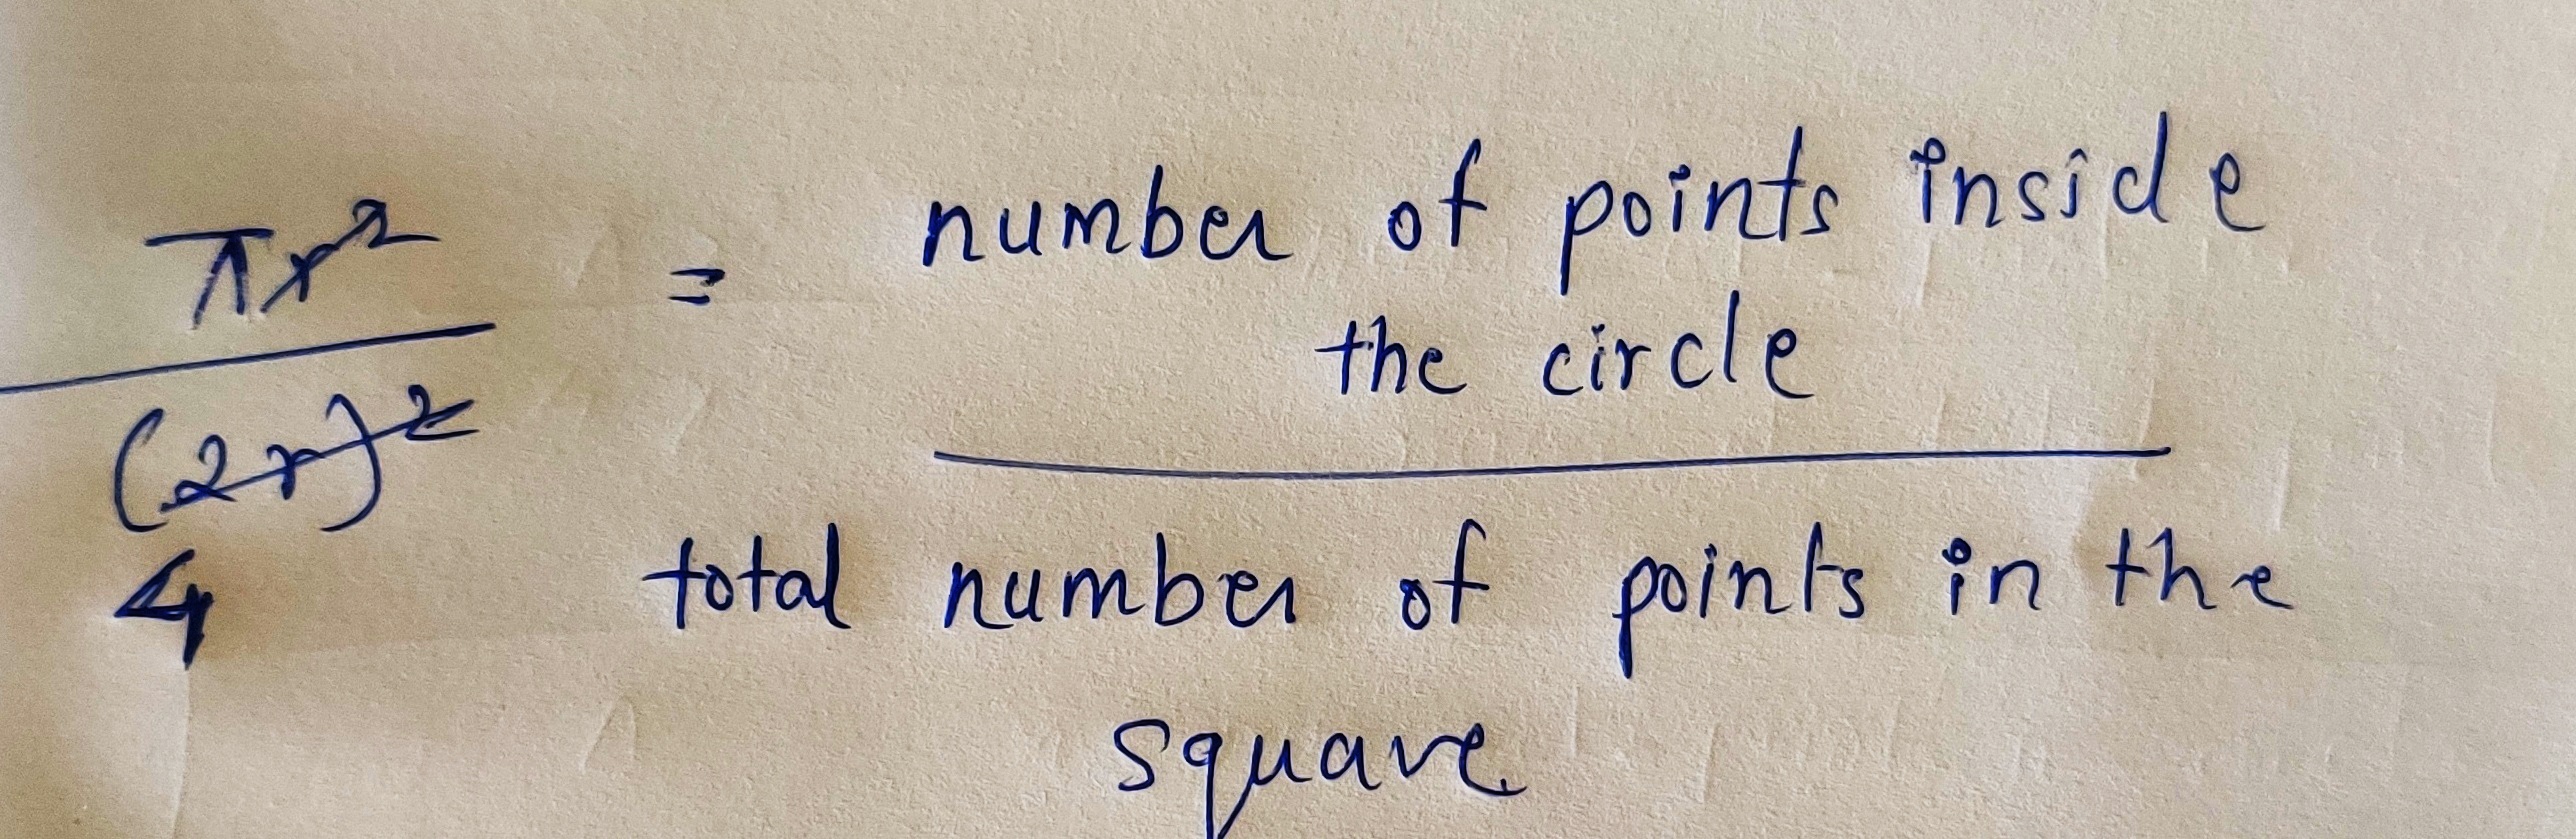 πr² = number of points inside
the circle
(2r)²
4 total number of points in the
square